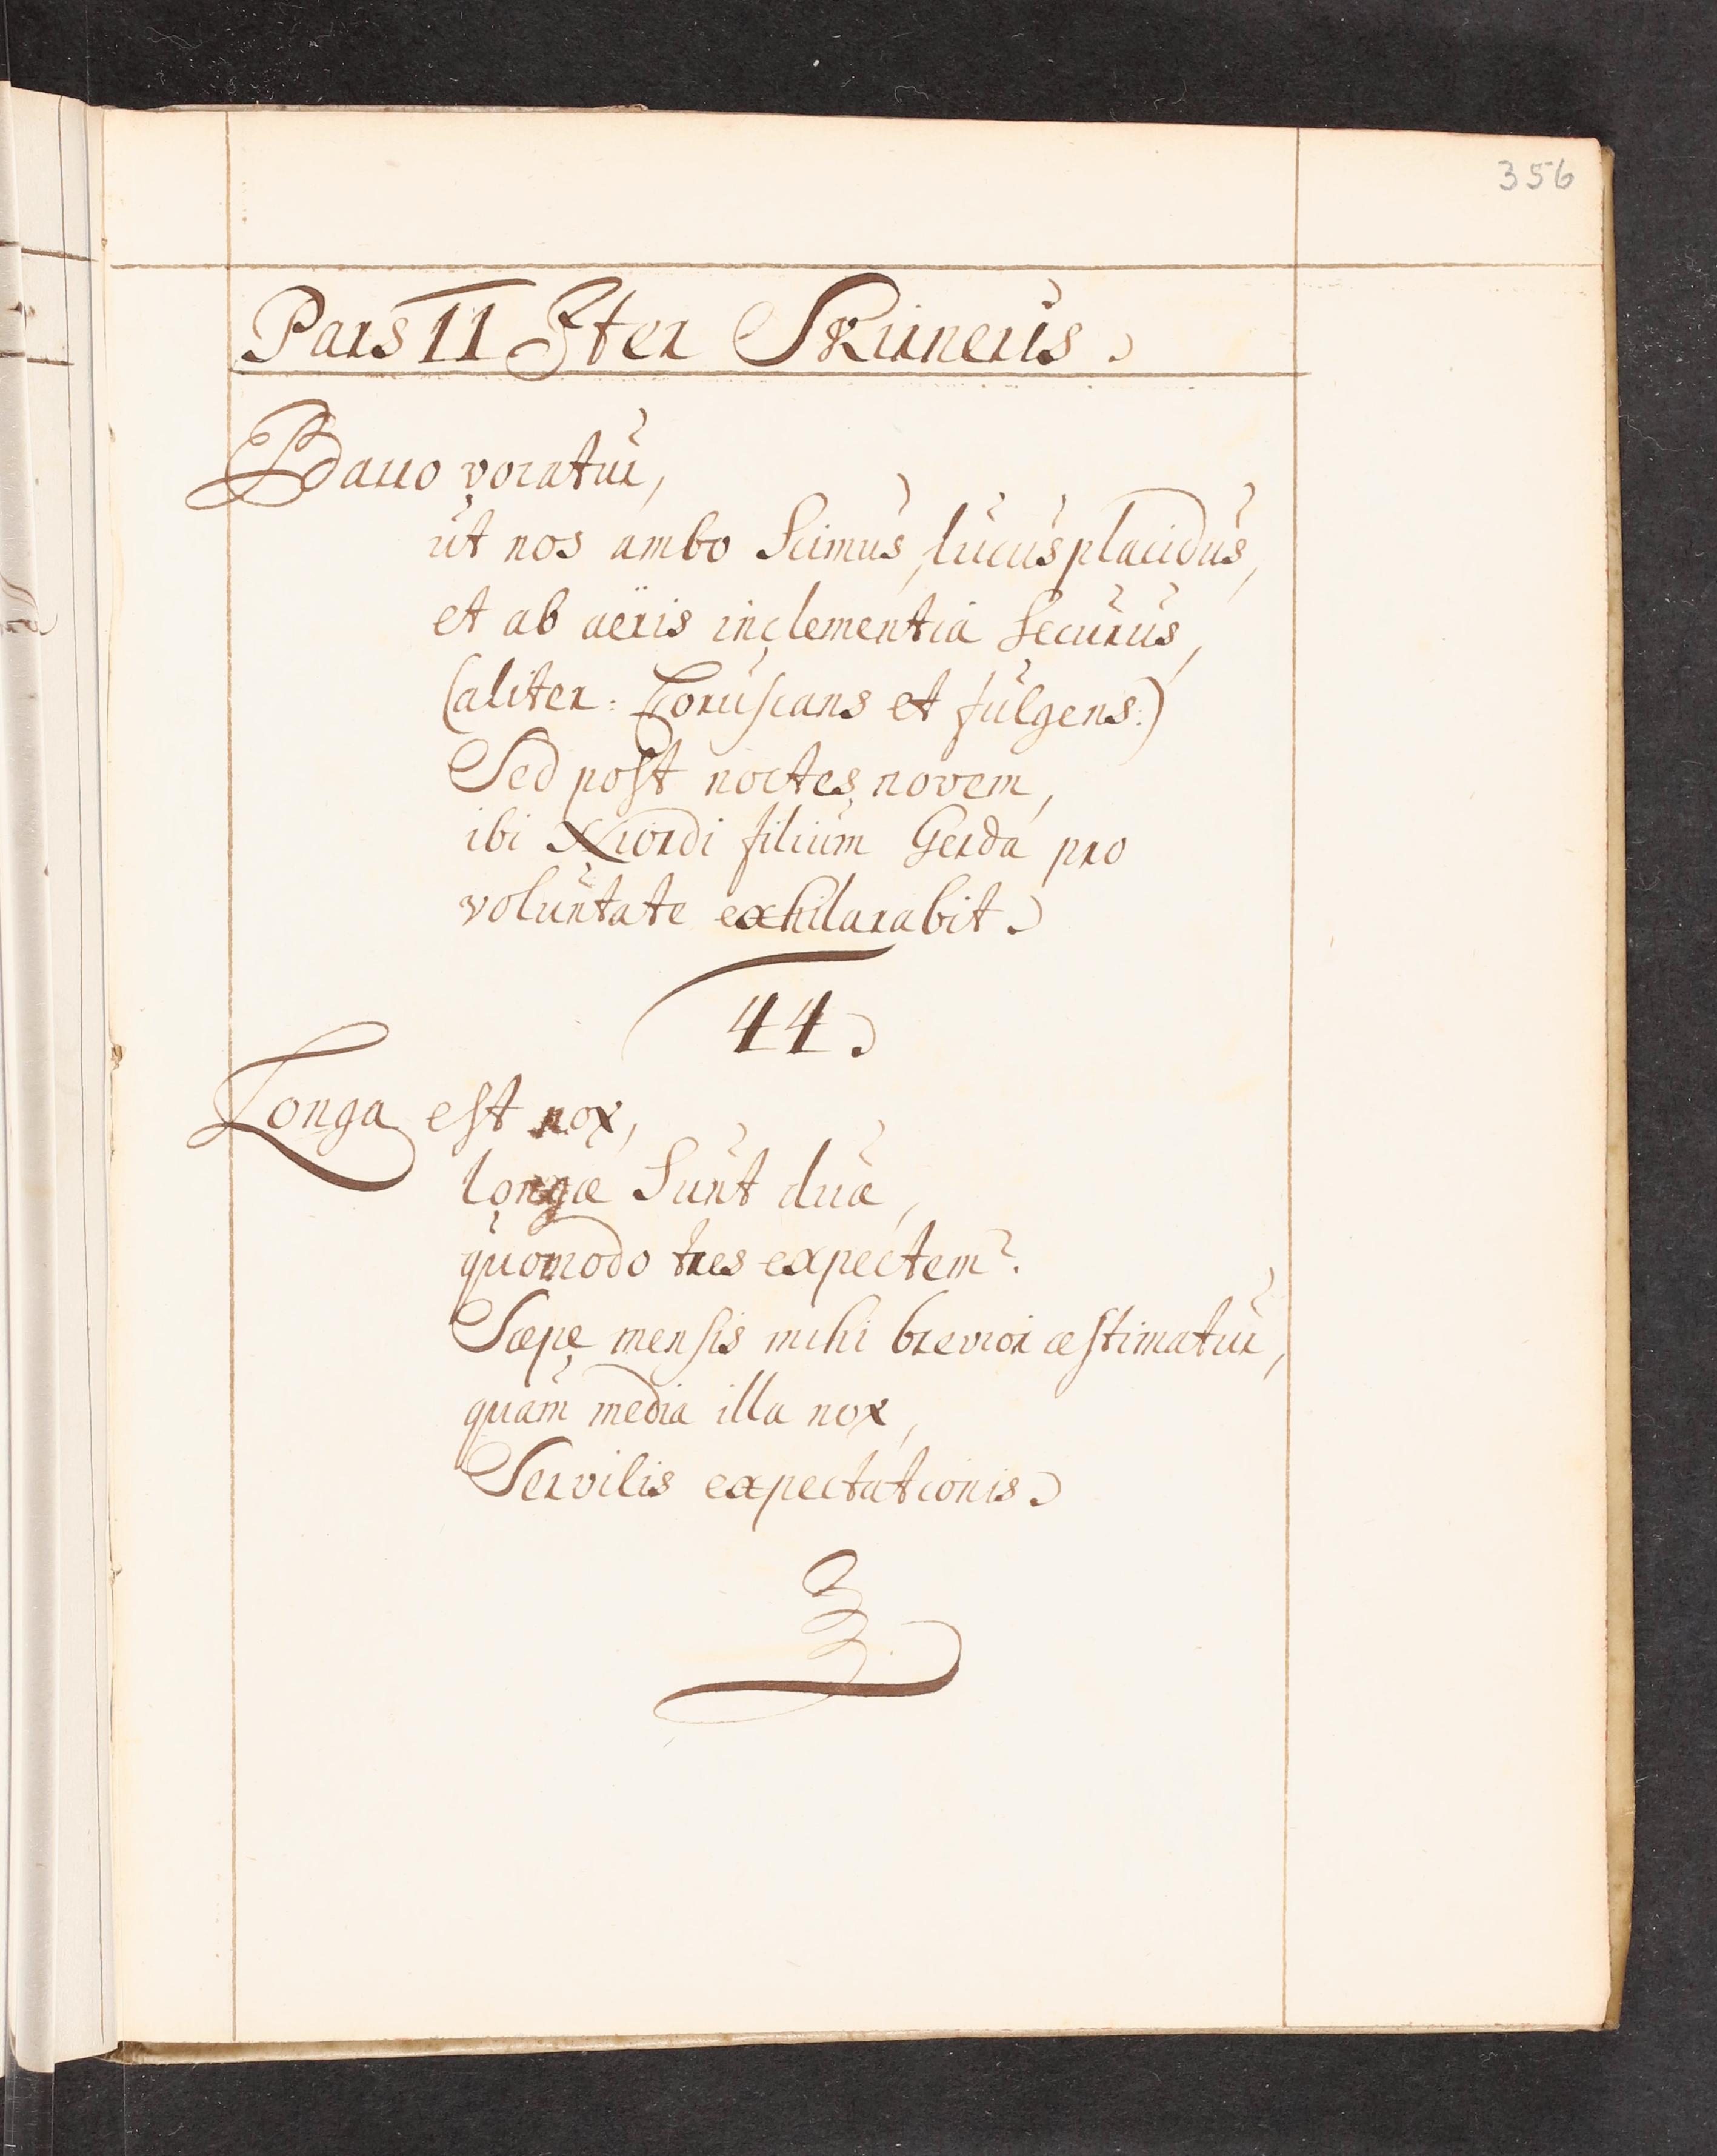 356
Pars II Iter Skirneris.
Barro vocatur,
ut nos ambo Scimus, lucus placidus,
et ab aëris inclementiâ Securus,
(aliter: Coruscans et fulgens:)
Sed post noctes novem,
ibi Niordi filium Gerda pro
voluntate exhilarabit.
44.
Longa est nox,
longæ Sunt duæ,
quomodo tres expectem?
Sæpe mensis mihi brevior æstimatur,
quam media illa nox,
Servilis expectationis.